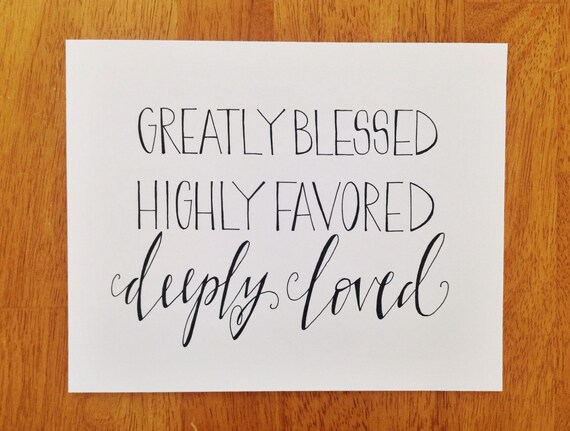 GREATLY BLESSED
HIGHLY FAVORED
deeply loved